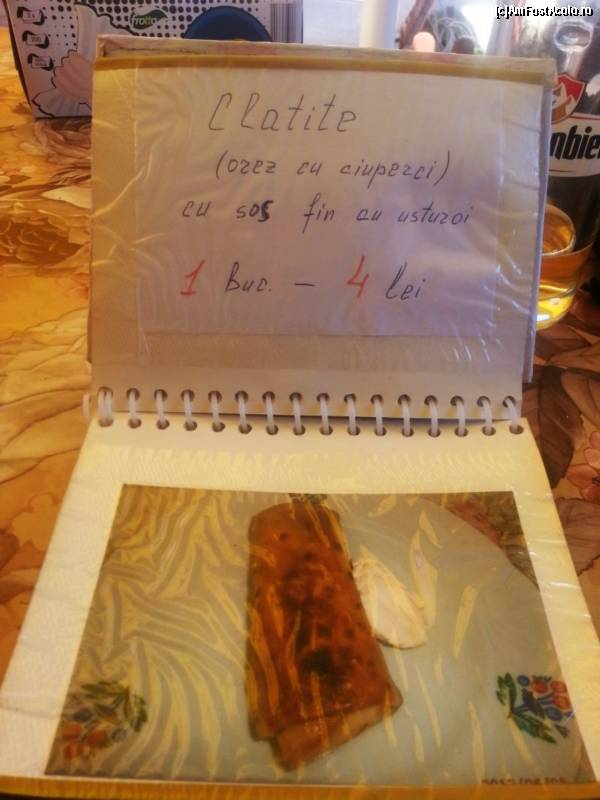 (c)AmFostAcolo.ro
frotto
mbier
Clatite
(orez cu ciuperci)
cu sos fin cu usturoi
1 Buc. – 4 lei